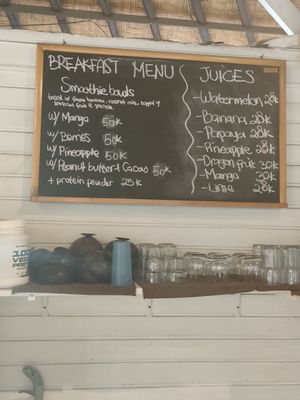 BREAKFAST MENU
Smoothie bowls
based w/ frozen banana, coconut milk, topped w/
seasonal fruit & granola
w/ Mango 50K
w/ Berries 50K
w/ Pineapple 50K
w/ Peanut butter + Cacao 50K
+ protein powder 25K
JUICES
- Watermelon 28K
- Banana 28K
- Papaya 28K
- Pineapple 28K
- Dragon fruit 30K
- Mango 30K
- Lime 28K